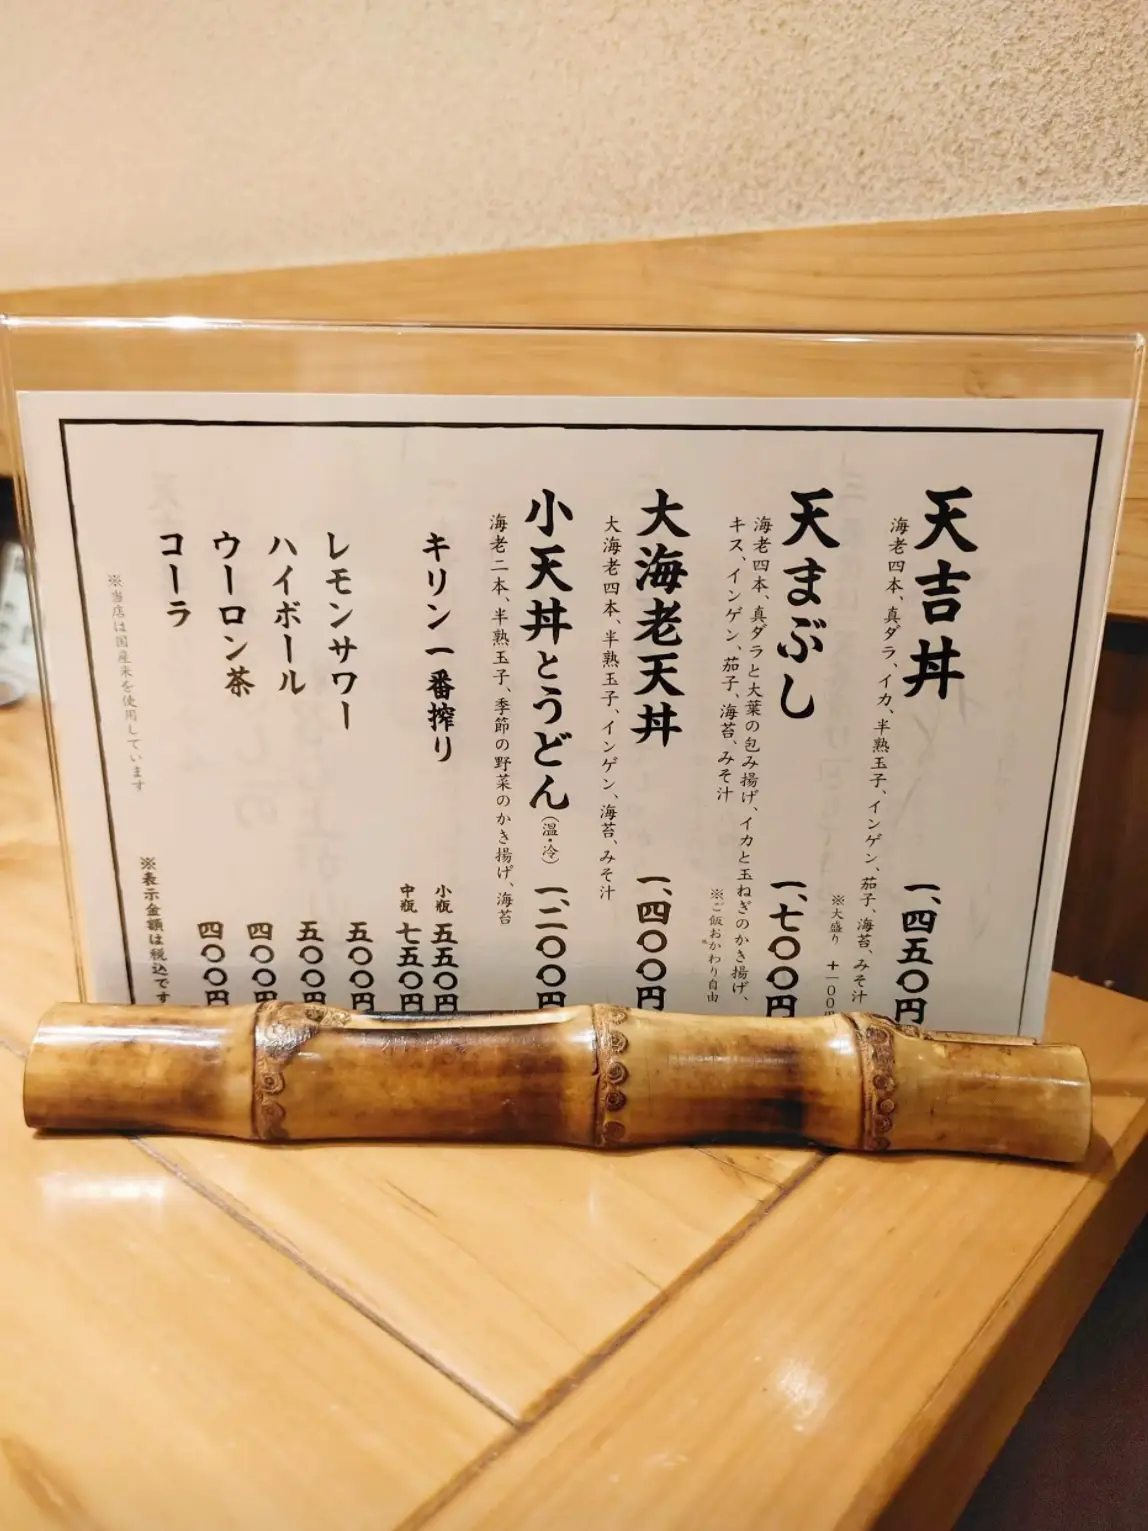 天吉丼 一、四五〇円
海老四本、真ダラ、イカ、半熟玉子、インゲン、茄子、海苔、みそ汁
※大盛り +一〇〇円
天まぶし 一、七〇〇円
海老四本、真ダラと大葉の包み揚げ、イカと玉ねぎのかき揚げ、
キス、インゲン、茄子、海苔、みそ汁
※ご飯おかわり自由
大海老天丼 一、四〇〇円
大海老四本、半熟玉子、インゲン、海苔、みそ汁
小天丼とうどん(温・冷) 一、二〇〇円
海老二本、半熟玉子、季節の野菜のかき揚げ、海苔
キリン一番搾り 小瓶 五五〇円
中瓶 七五〇円
レモンサワー 五〇〇円
ハイボール 五〇〇円
ウーロン茶 四〇〇円
コーラ 四〇〇円
※表示金額は税込です
※当店は国産米を使用しています